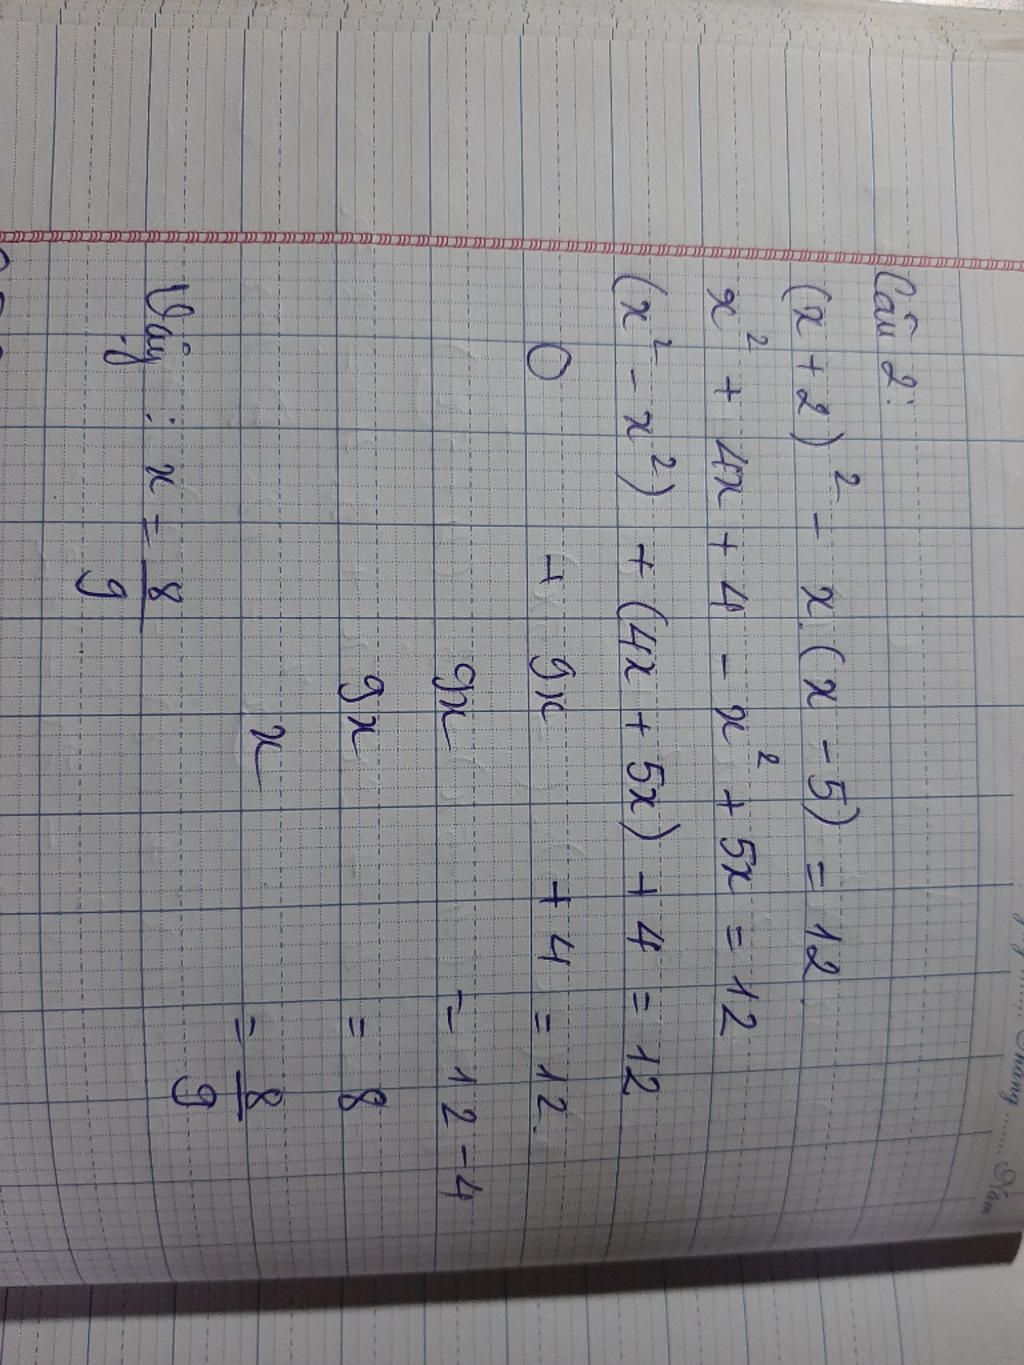 Tháng ...... Năm
Câu 2:
(x + 2)² - x.(x - 5) = 12
x² + 4x + 4 - x² + 5x = 12
(x² - x²) + (4x + 5x) + 4 = 12
0 + 9x + 4 = 12.
9x = 12 - 4
9x = 8
x = 8/9
Vậy : x = 8/9